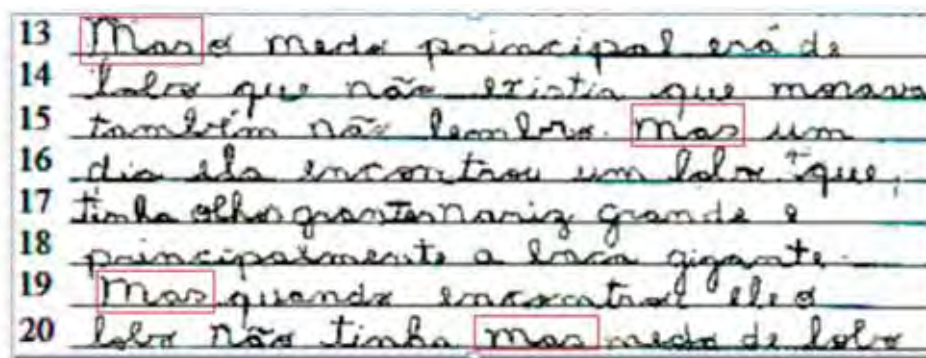 13 Mas o medo principal erá de
14 lobo que não existia que morava
15 também não lembro. Mas um
16 dia ela encontrou um lobo que,
17 tinha olhos grantes nariz grande e
18 principalmente a boca gigante.
19 Mas quando encontrou ele o
20 lobo não tinha mas medo de lobo